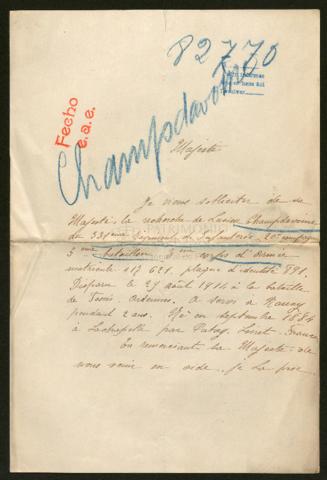 82770
Fecho
e.a.e.
Champdavoine
Majesté
Je viens solliciter de sa
Majesté la recherche de Lucien Champdavoine
du 331ème Régiment de Infanterie 20e compagnie
5ème bataillon corps d'armée
matricule 017621, plaque d'identité 791.
Disparu le 29 août 1914 à la bataille
de Ardennes. A servi à Nancy
pendant 2 ans. Né en septembre 1884
à Lachapelle par Patay. Loiret. France
En remerciant Sa Majesté de
nous venir en aide, je La prie
PATRIMONIO